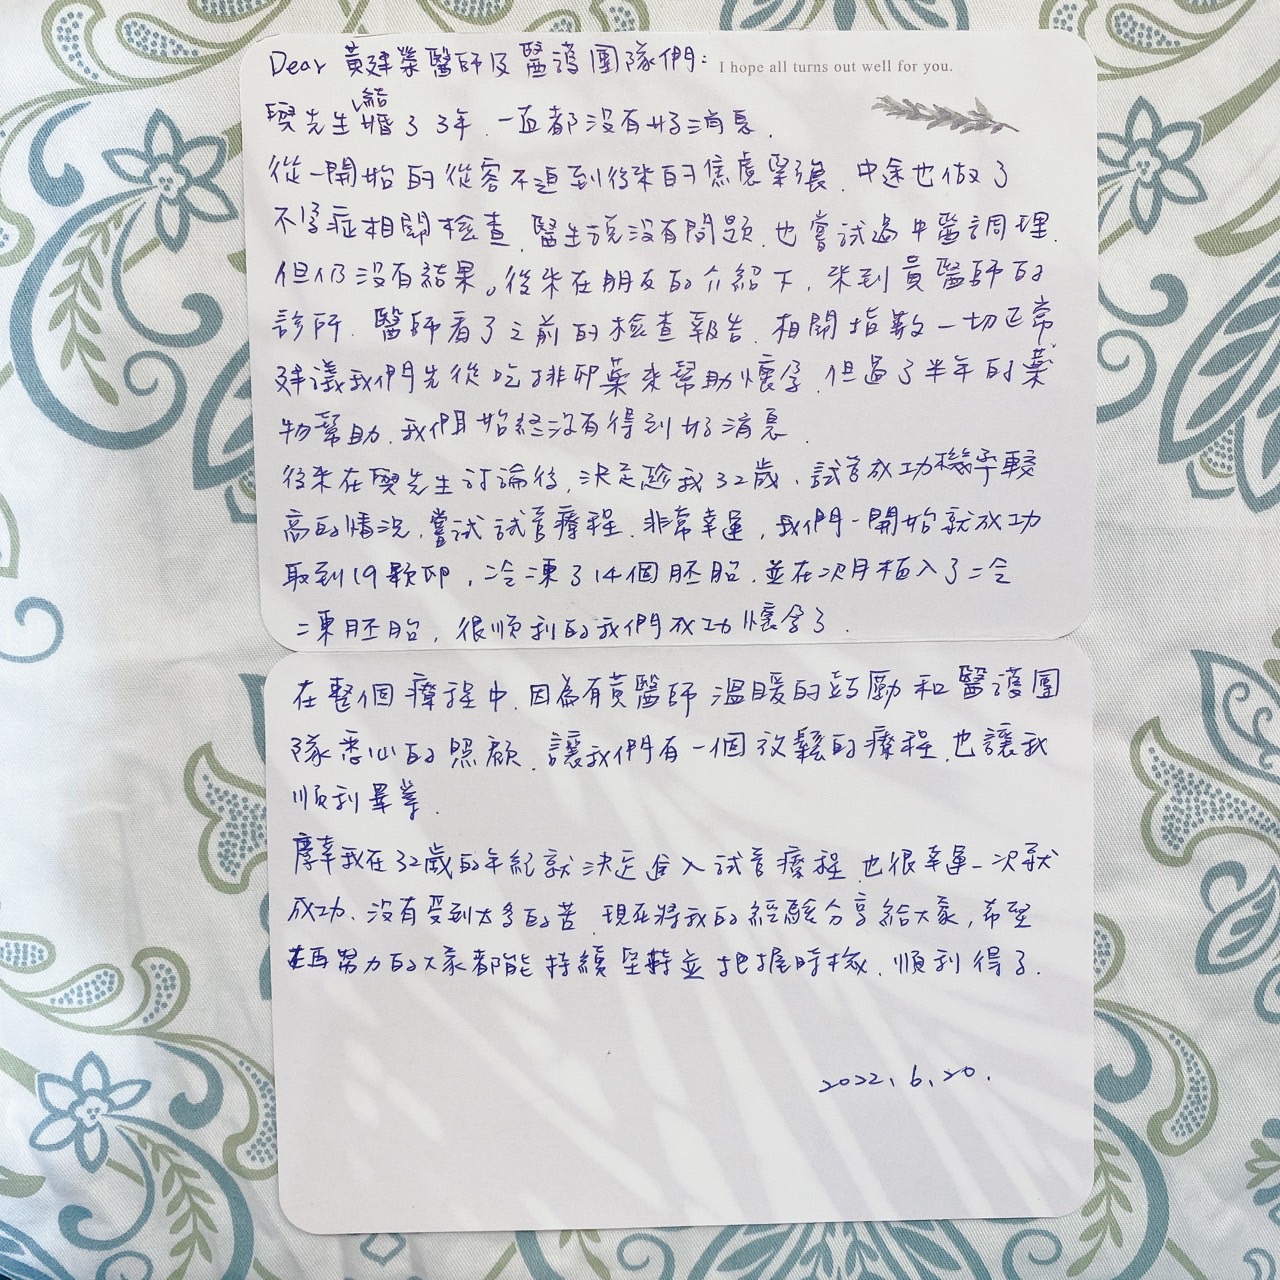 Dear 黃建榮醫師及醫護團隊們:
I hope all turns out well for you.
與先生結婚了3年，一直都沒有好消息，
從一開始的從容不迫到後來的焦慮緊張，中途也做了
不孕症相關檢查，醫生說沒有問題，也嘗試過中醫調理，
但仍沒有結果。後來在朋友的介紹下，來到黃醫師的
診所，醫師看了之前的檢查報告，相關指數一切正常
建議我們先從吃排卵藥來幫助懷孕，但過了半年的藥
物幫助，我們始終沒有得到好消息，
後來在與先生討論後，決定趁我32歲，試管成功機率較
高的情況，嘗試試管療程，非常幸運，我們一開始就成功
取到19顆卵，冷凍了14個胚胎，並在次月植入了二冷
凍胚胎，很順利的我們成功懷孕了，
在整個療程中，因為有黃醫師溫暖的鼓勵和醫護團
隊悉心的照顧，讓我們有一個放鬆的療程，也讓我
順利畢業，
慶幸我在32歲的年紀就決定進入試管療程，也很幸運一次就
成功，沒有受到太多的苦，現在將我的經驗分享給大家，希望
在再努力的大家都能持續堅持並把握時機，順利得子，
2022.6.20.